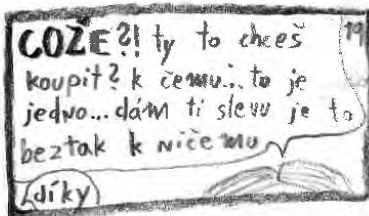 COŽE?! ty to chceš
19
koupit? k čemu... to je
jedno... dám ti slevu je to
beztak k ničemu
díky